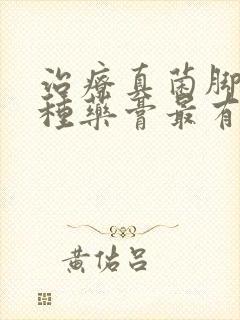 治療真菌腳
種藥膏最有
黃佑呂